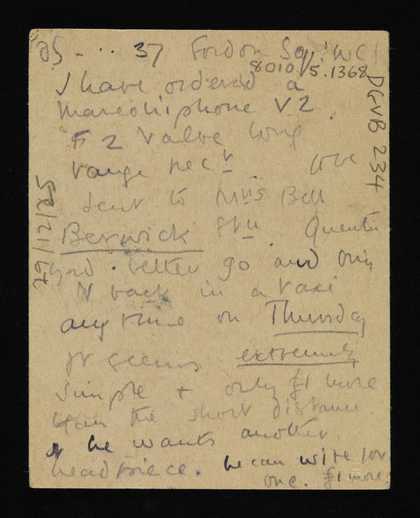 37 Gordon Sq: WC1
8010/5.1368
I have ordered a
Marconiphone V2
2 valve long
range rec^r
sent to Mrs Bell
Berwick Stn. Quentin
had better go and bring
it back in a taxi
any time on Thursday
It seems extremely
simple + only £1 more
than the short distance
If he wants another
headpiece. he can wire for
one. £1 more
DCVB 234